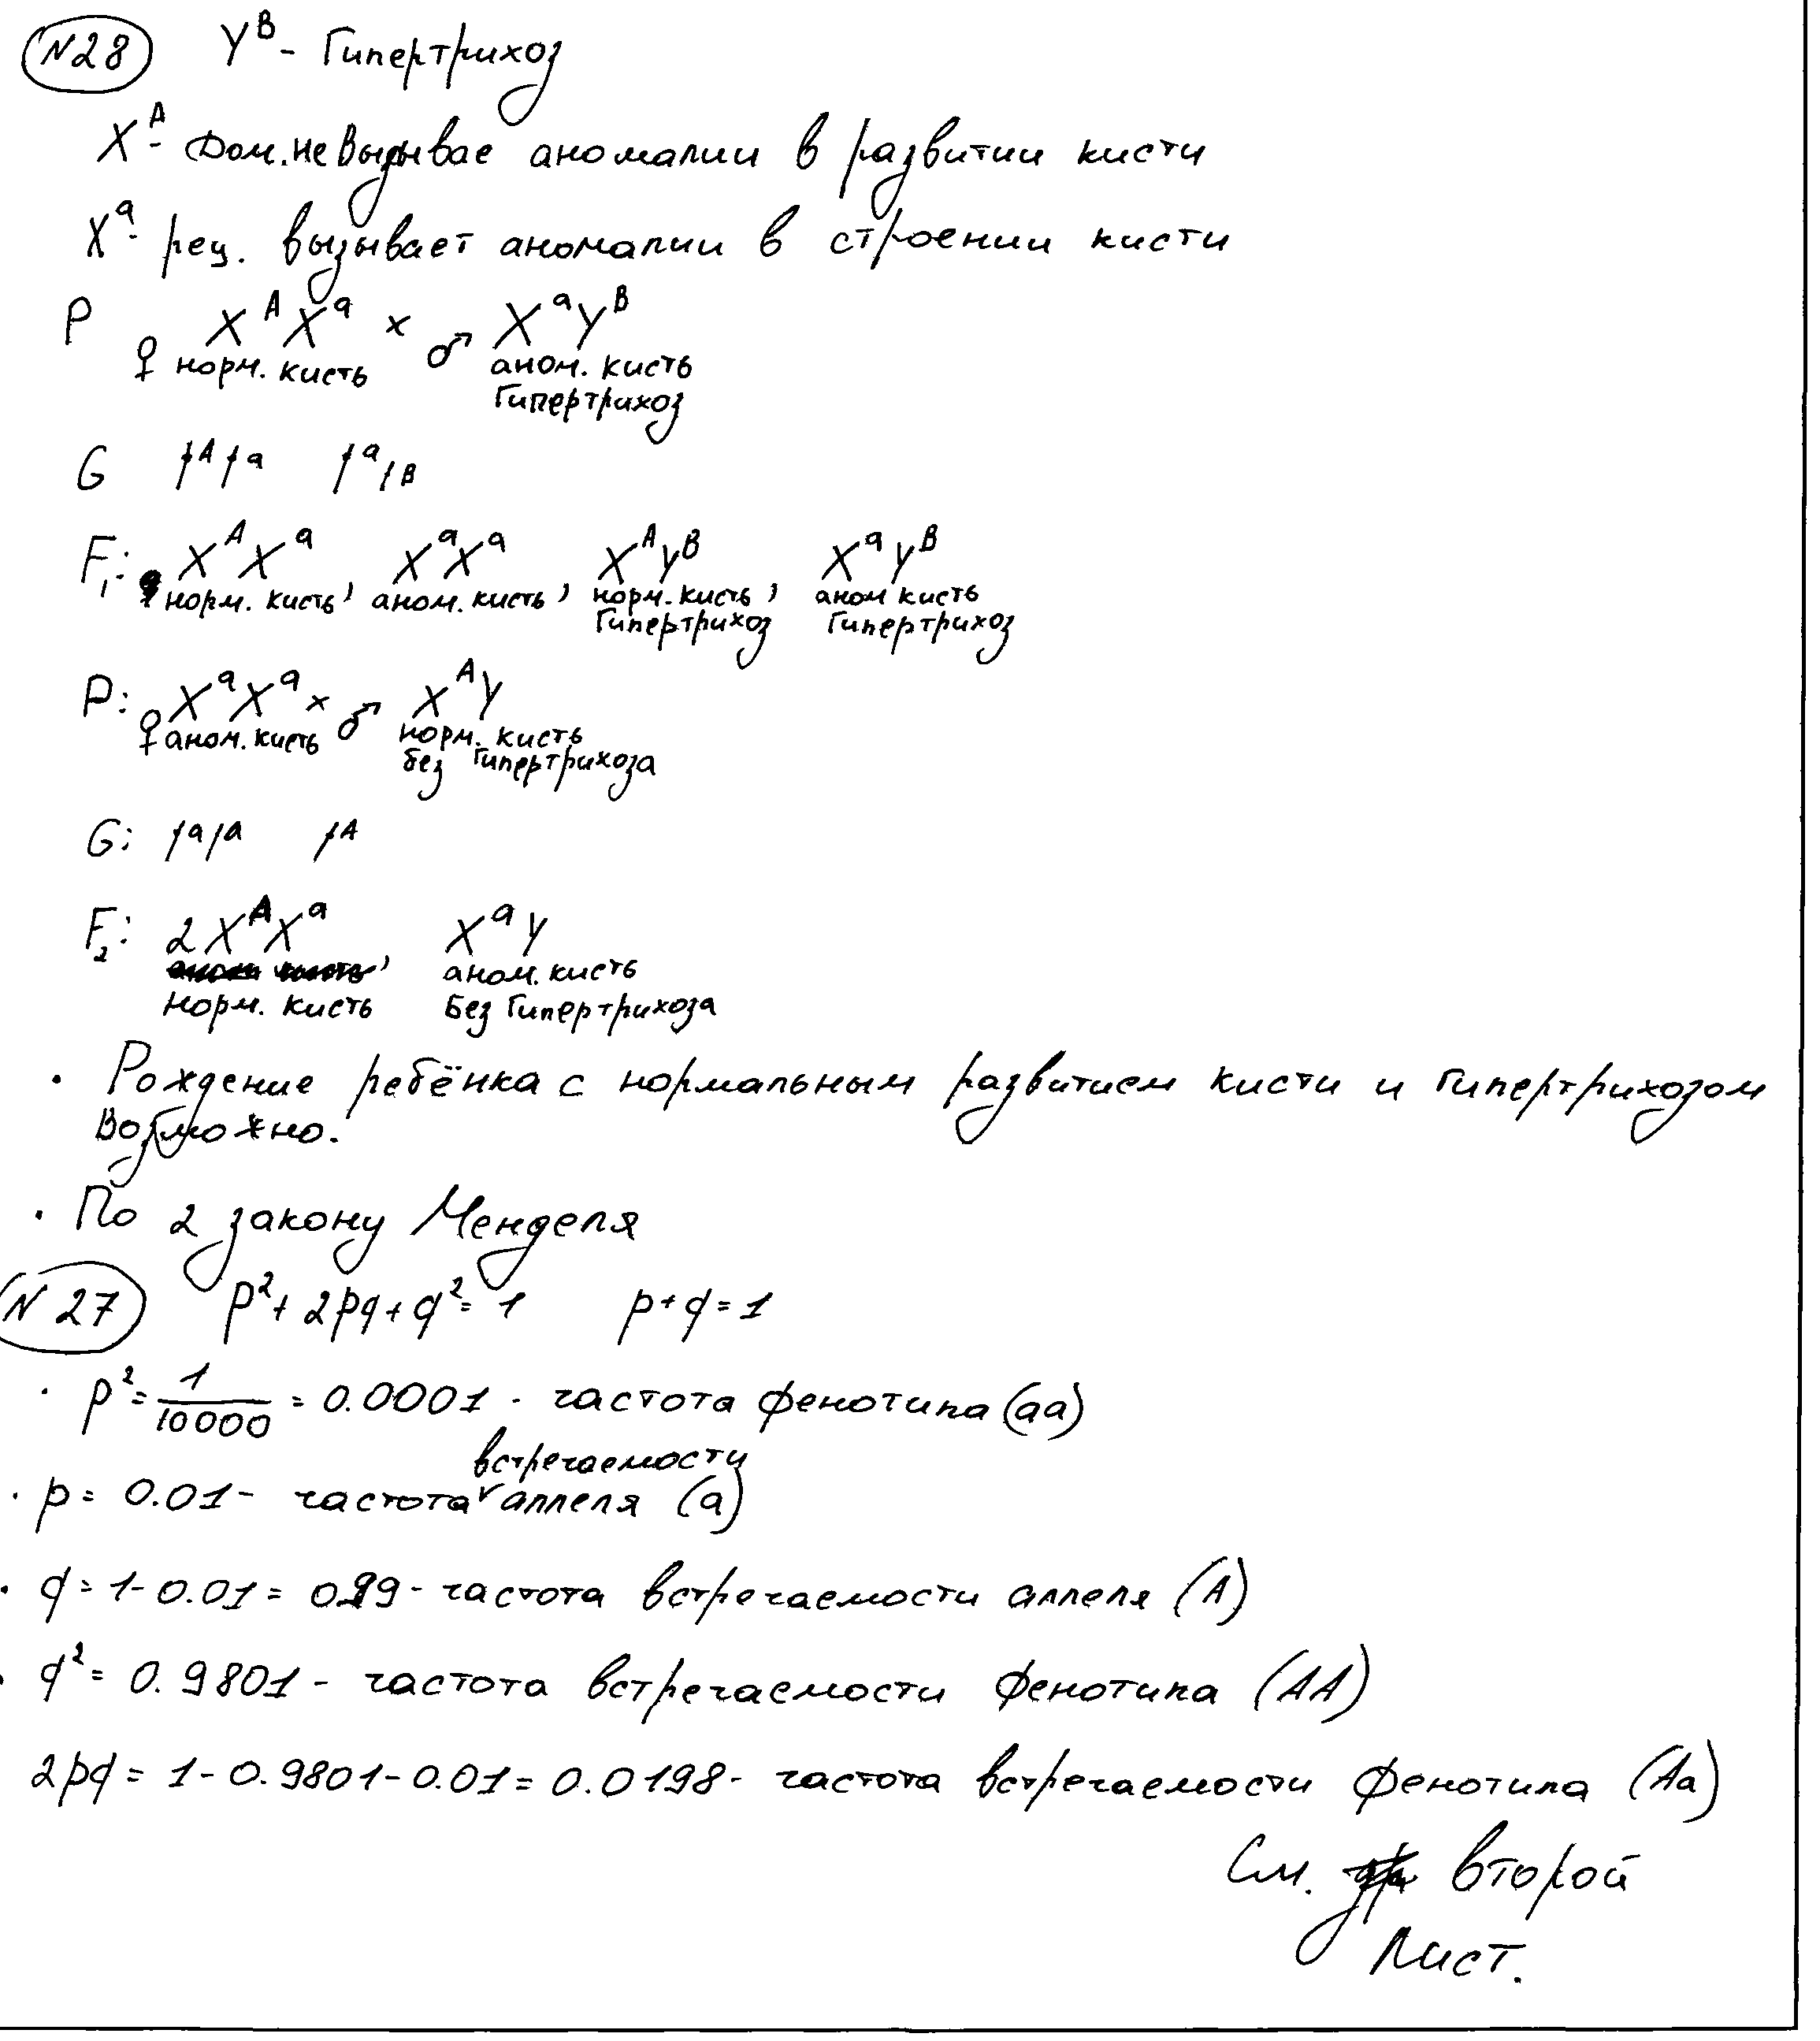 №28 Y^B - Гипертрихоз
X^A - Дом. не вызывае аномалии в развитии кисти
X^a - рец. вызывает аномалии в строении кисти
P ♀ X^A X^a × ♂ X^a Y^B
норм. кисть аном. кисть
Гипертрихоз
G /^A /^a /^a /^B
F1: X^A X^a X^a X^a X^A Y^B X^a Y^B
норм. кисть, аном. кисть, норм. кисть, аном кисть
Гипертрихоз Гипертрихоз
P: ♀ X^a X^a × ♂ X^A Y
аном. кисть норм. кисть
без Гипертрихоза
G: /^a /^a /^A
F2: 2 X^A X^a, X^a Y
аном. кисть
норм. кисть Без Гипертрихоза
· Рождение ребёнка с нормальным развитием кисти и гипертрихозом
возможно.
· По 2 закону Менделя
№ 27 p² + 2pq + q² = 1 p + q = 1
· p² = 1/10000 = 0.0001 - частота фенотипа (aa)
встречаемости
· p = 0.01 - частота ᵛ аллеля (a)
· q = 1 - 0.01 = 0.99 - частота встречаемости аллеля (A)
· q² = 0.9801 - частота встречаемости фенотипа (AA)
2pq = 1 - 0.9801 - 0.01 = 0.0198 - частота встречаемости фенотипа (Aa)
См. второй
лист.